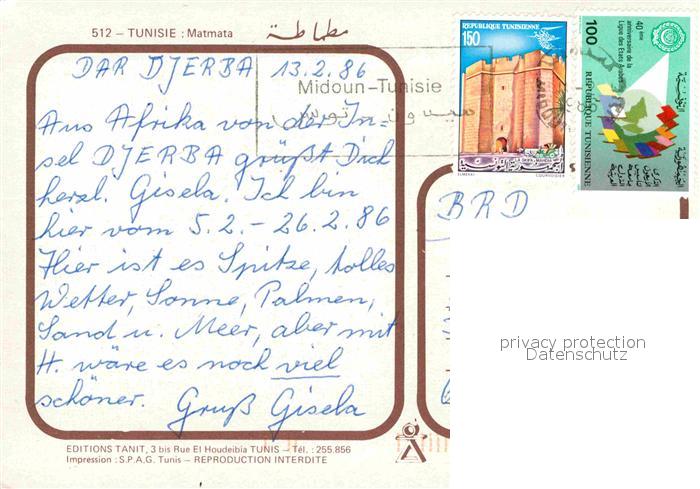 512 – TUNISIE : Matmata مطماطة
DAR DJERBA 13.2.86
Midoun-Tunisie
Aus Afrika von der In=
sel DJERBA grüßt Dich
herzl. Gisela. Ich bin
hier vom 5.2. – 26.2.86
Hier ist es Spitze, tolles
Wetter, Sonne, Palmen,
Sand u. Meer, aber mit
H. wäre es noch viel
schöner. Gruß Gisela
EDITIONS TANIT, 3 bis Rue El Houdeibia TUNIS – Tél. : 255.856
Impression : S.P.A.G. Tunis – REPRODUCTION INTERDITE
REPUBLIQUE TUNISIENNE
150
ELMEKKI COURVOISIER
100
40 ème
anniversaire de la
Ligue des Etats Arabes
REPUBLIQUE TUNISIENNE
BRD
privacy protection
Datenschutz